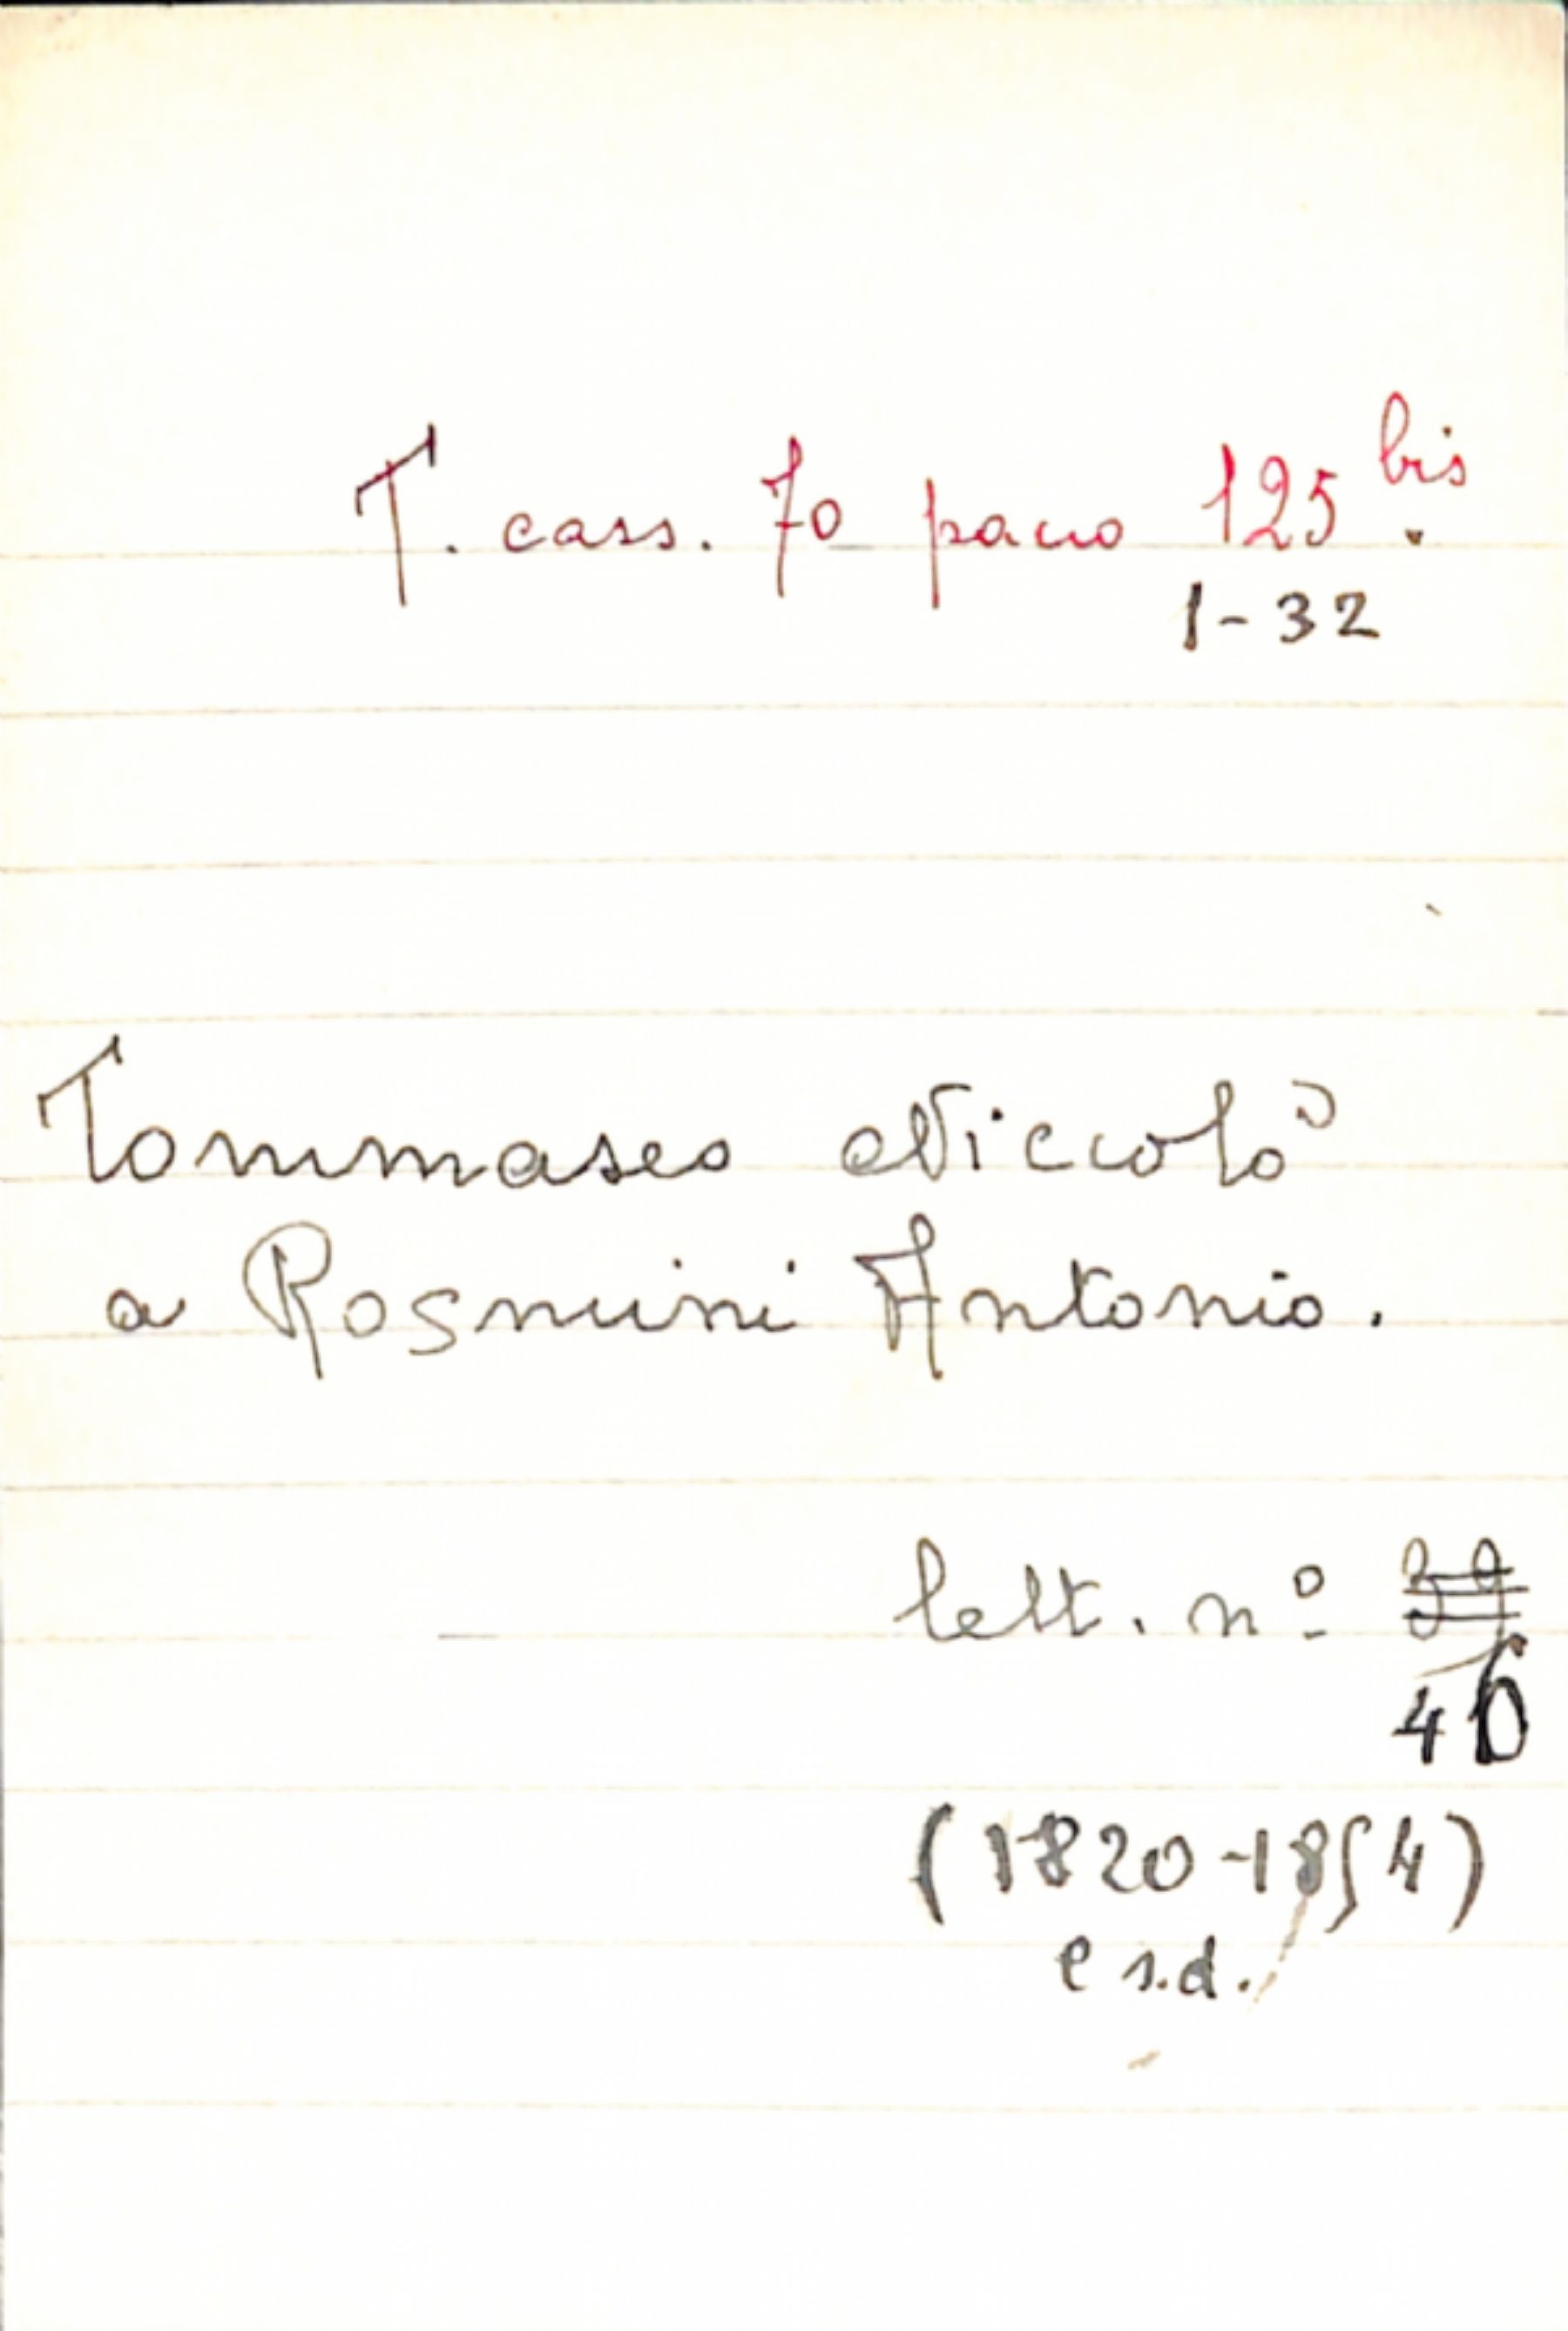 T. cass. 70 pacco 125 bis.
1-32
Tommaseo Niccolò
a Rosmini Antonio.
lett. nº 39
46
(1820-1854)
e s.d.